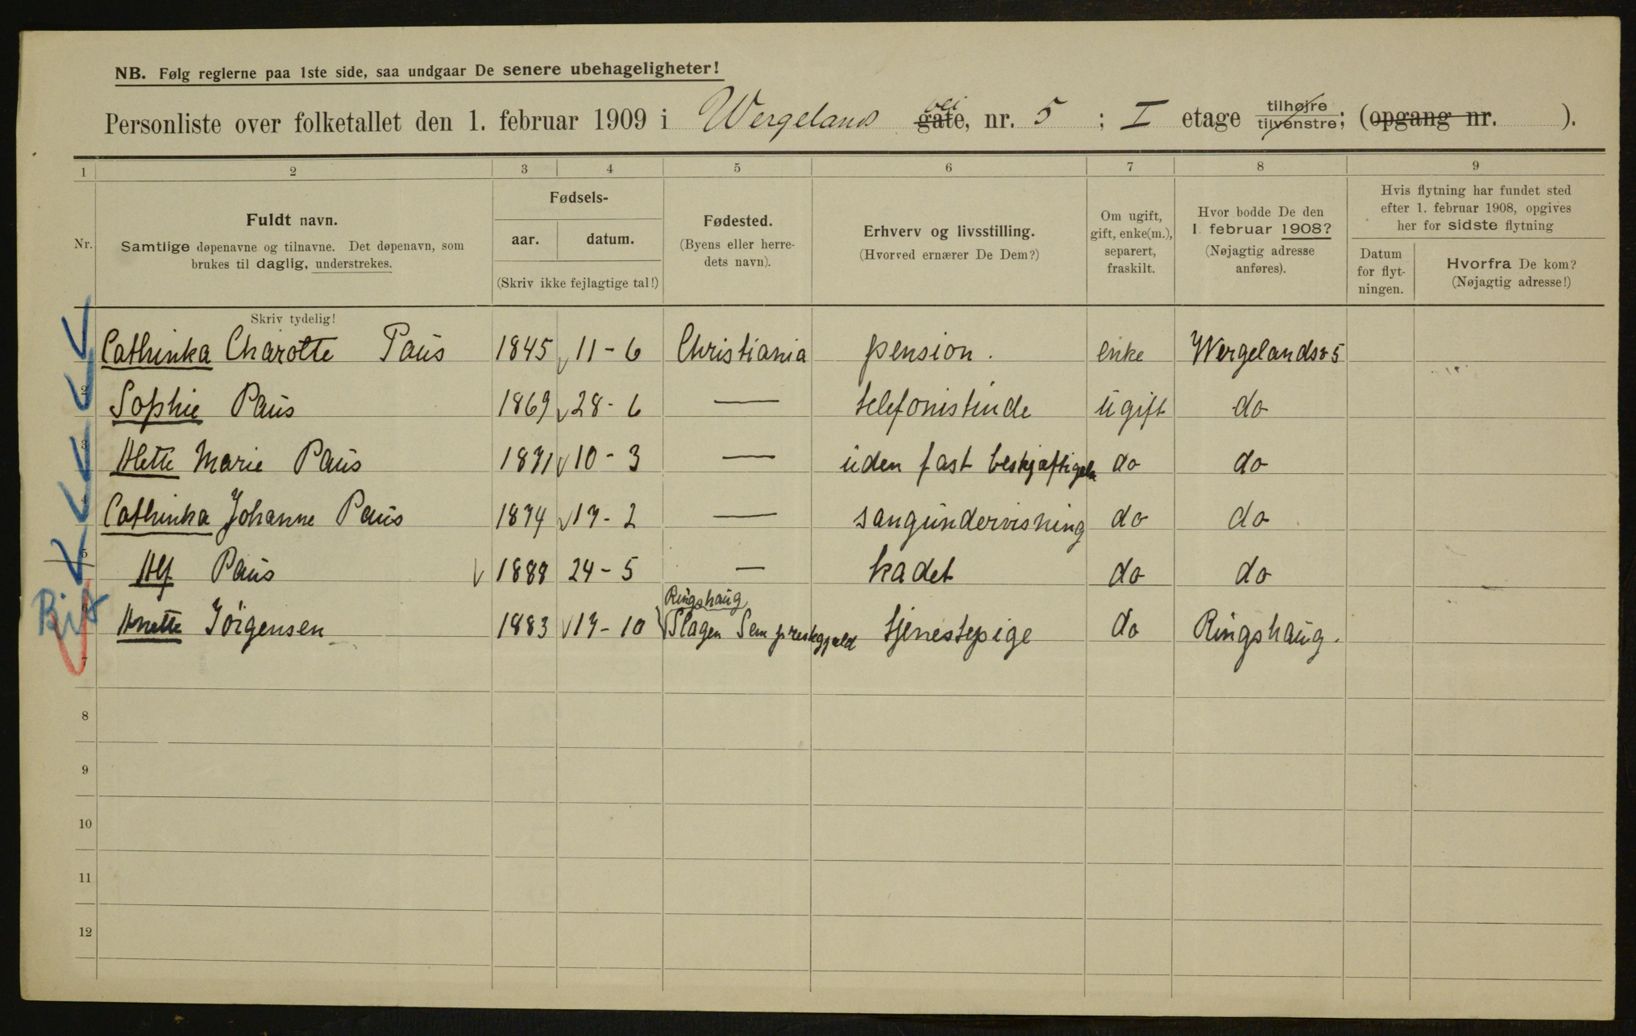 NB. Følg reglerne paa 1ste side, saa undgaar De senere ubehageligheter!
Personliste over folketallet den 1. februar 1909 i Wergelands gate vei, nr. 5 ; I etage tilhøjre tilvenstre; (opgang nr. ).
1 2 3 4 5 6 7 8 9
Nr.
Fuldt navn.
Samtlige døpenavne og tilnavne. Det døpenavn, som
brukes til daglig, understrekes.
Fødsels-
aar. datum.
(Skriv ikke fejlagtige tal!)
Fødested.
(Byens eller herre-
dets navn).
Erhverv og livsstilling.
(Hvorved ernærer De Dem?)
Om ugift,
gift, enke(m.),
separert,
fraskilt.
Hvor bodde De den
1. februar 1908?
(Nøjagtig adresse
anføres).
Hvis flytning har fundet sted
efter 1. februar 1908, opgives
her for sidste flytning
Datum
for flyt-
ningen.
Hvorfra De kom?
(Nøjagtig adresse!)
Skriv tydelig!
Cathinka Charotte Paus 1845 11-6 Christiania pension. enke Wergelandsv 5
2 Sophie Paus 1869 28-6 — telefonistinde ugift do
3 Alette Marie Paus 1871 10-3 — uden fast beskjæftigels do do
4 Cathinka Johanne Paus 1874 17-2 — sangundervisning do do
5 Alf Paus 1888 24-5 — kadet do do
Anette Jörgensen 1883 17-10 Ringshaug Slagen Sem prestegjeld tjenestepige do Ringshaug.
7
8
9
10
11
12